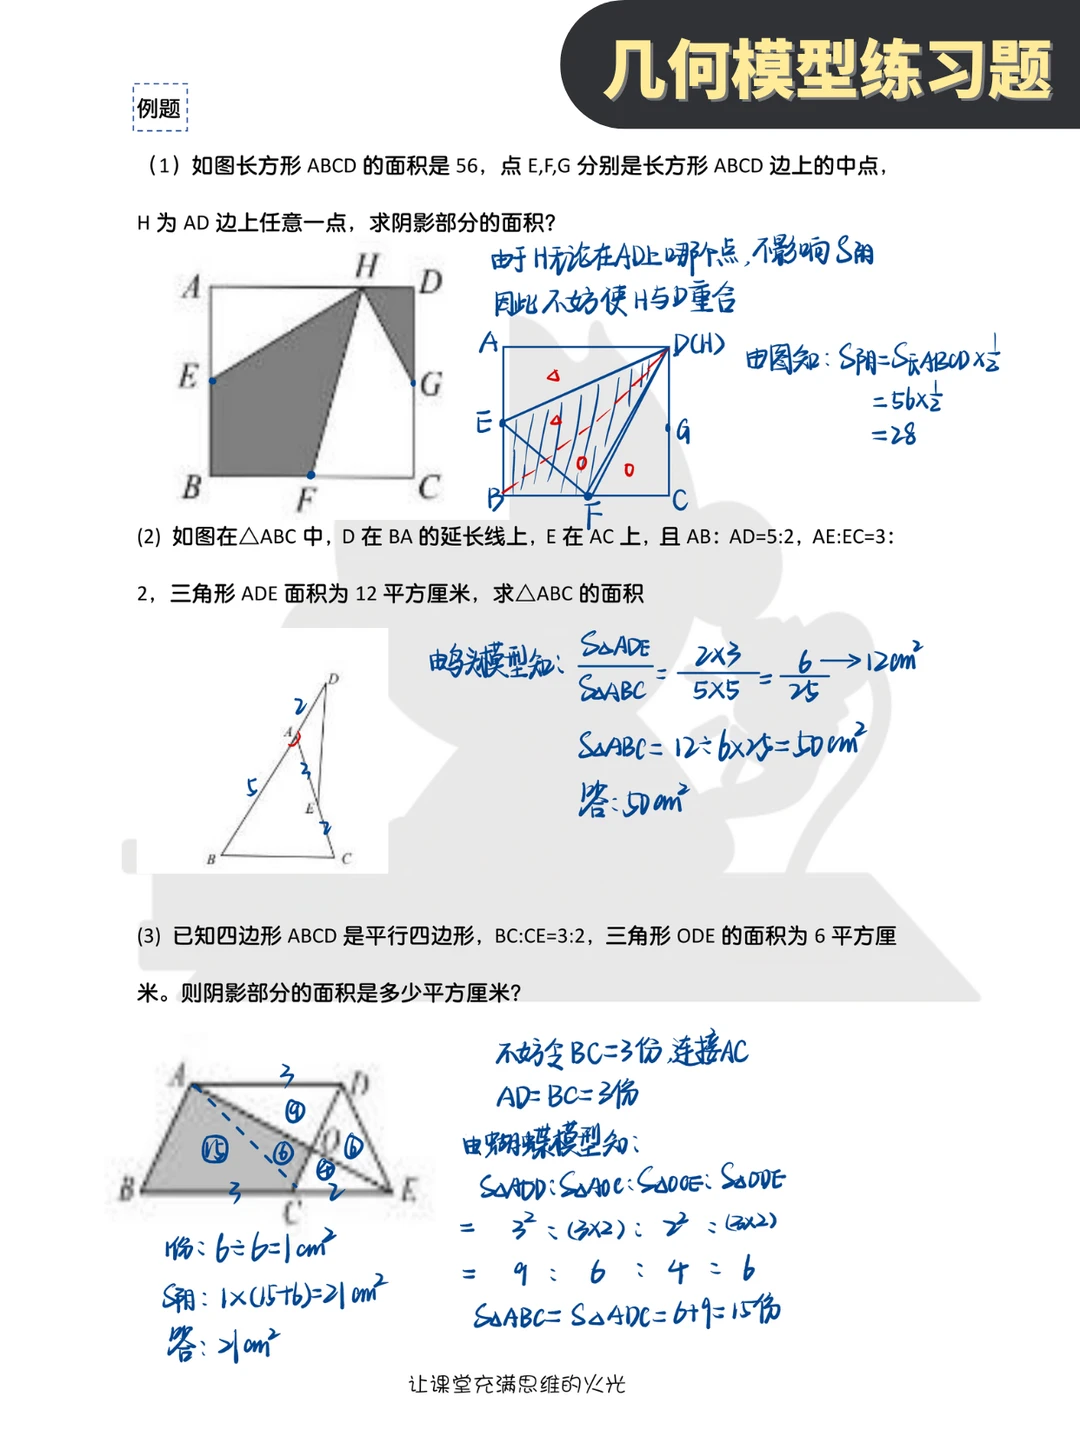 几何模型练习题
例题
（1）如图长方形 ABCD 的面积是 56，点 E,F,G 分别是长方形 ABCD 边上的中点，
H 为 AD 边上任意一点，求阴影部分的面积?
由于H无论在AD上哪个点,不影响S阴
因此不妨使H与D重合
A H D
E G
B F C
A D(H)
E G
B F C
由图知：S阴=S长ABCD×1/2
=56×1/2
=28
(2) 如图在△ABC 中，D 在 BA 的延长线上，E 在 AC 上，且 AB：AD=5:2，AE:EC=3：
2，三角形 ADE 面积为 12 平方厘米，求△ABC 的面积
由鸟头模型知: S△ADE/S△ABC = 2×3/5×5 = 6/25 → 12cm²
S△ABC = 12÷6×25=50cm²
答:50cm²
D
2
A
3
5
E
2
B C
(3) 已知四边形 ABCD 是平行四边形，BC:CE=3:2，三角形 ODE 的面积为 6 平方厘
米。则阴影部分的面积是多少平方厘米?
不妨令BC=3份,连接AC
AD=BC=3份
由蝴蝶模型知:
S△ADO:S△AOC:S△OCE:S△ODE
= 3² : (3×2) : 2² : (3×2)
= 9 : 6 : 4 : 6
S△ABC = S△ADC=6+9=15份
A 3 D
⑨
⑮ ⑥ O ⑥
④
B 3 C 2 E
1份: 6÷6=1cm²
S阴: 1×(15+6)=21cm²
答: 21cm²
让课堂充满思维的火光